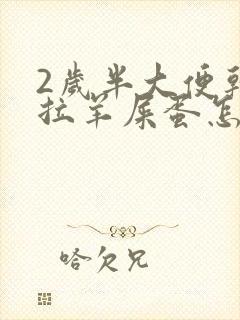 2歲半大便
拉羊屎蛋怎
哈欠兄